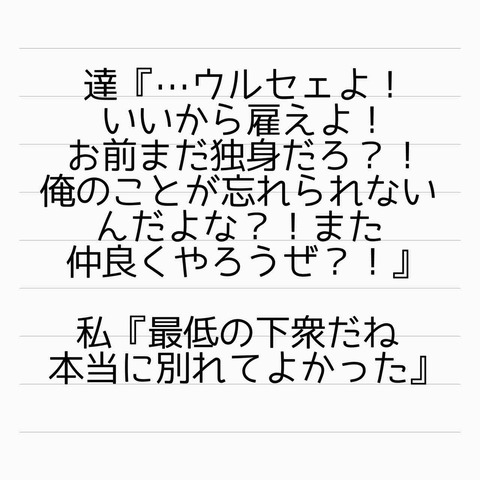 達『…ウルセェよ！
いいから雇えよ！
お前まだ独身だろ？！
俺のことが忘れられない
んだよな？！また
仲良くやろうぜ？！』
私『最低の下衆だね
本当に別れてよかった』